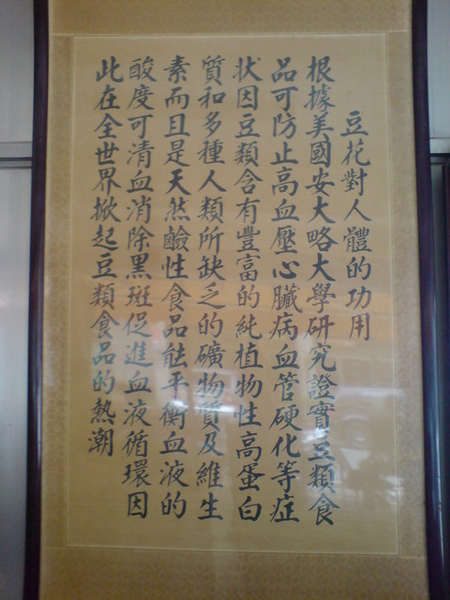 豆花對人體的功用
根據美國安大略大學研究證實豆類食
品可防止高血壓心臟病血管硬化等症
状因豆類含有豐富的純植物性高蛋白
質和多種人類所缺乏的礦物質及維生
素而且是天然鹼性食品能平衡血液的
酸度可清血消除黑斑促進血液循環因
此在全世界掀起豆類食品的熱潮